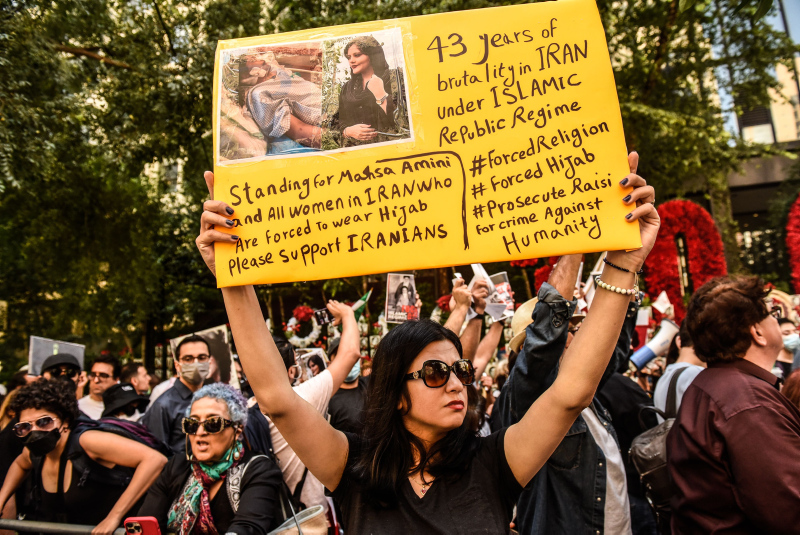 43 years of
brutality in IRAN
under ISLAMIC
Republic Regime
#Forced Religion
#Forced Hijab
#Prosecute Raisi
for crime Against
Humanity
Standing for Mahsa Amini
and All women in IRAN who
Are Forced to wear Hijab
please support IRANIANS